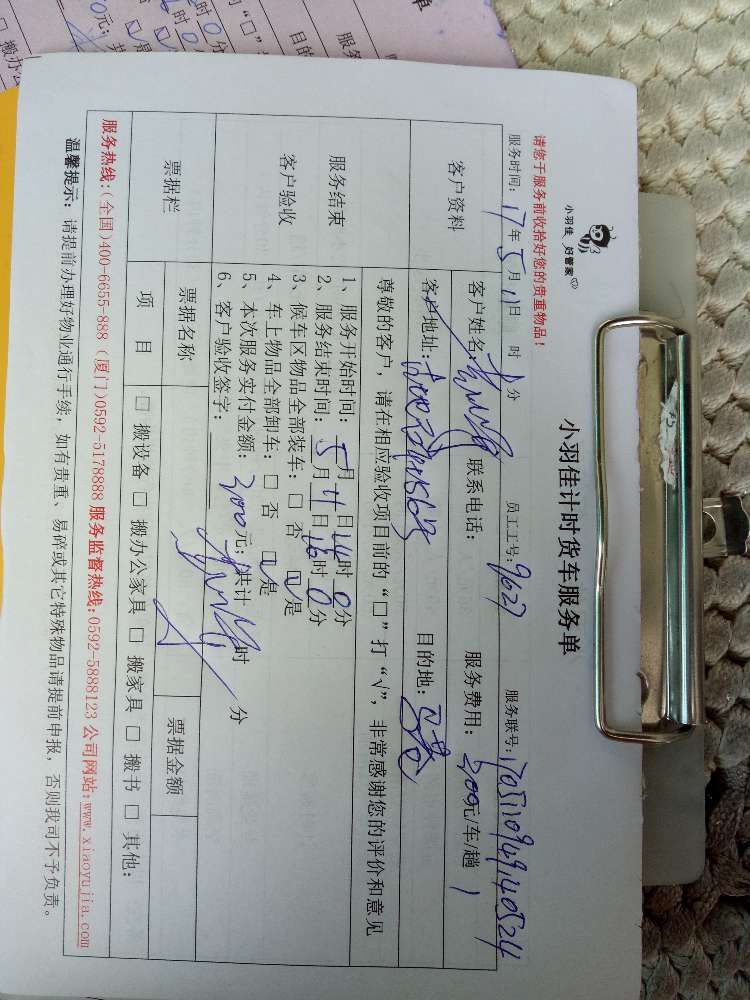 小羽佳 好管家
小羽佳计时货车服务单
请您于服务前收拾好您的贵重物品！
服务时间：17年5月11日 时 分 员工工号：9627 服务联号：170511094940524
客户资料 客户姓名： 联系电话： 服务费用：200元/车/趟 1
客户地址： 目的地：
尊敬的客户，请在相应验收项目前的“□”打“√”，非常感谢您的评价和意见
服务结束
客户验收
1、服务开始时间：5月11日14时0分
2、服务结束时间：5月11日16时0分
3、候车区物品全部装车：□ 否 ☑是
4、车上物品全部卸车：□ 否 ☑是
5、本次服务实付金额：200元；共计 时 分
6、客户验收签字：
票据栏 票据名称 票据金额
项 目 □ 搬设备 □ 搬办公家具 □ 搬家具 □ 搬书 □ 其他：
服务热线：(全国)400-6655-888 (厦门)0592-5178888 服务监督热线：0592-5888123 公司网站：www.xiaoyujia.com
温馨提示：请提前办理好物业通行手续，如有贵重、易碎或其它特殊物品请提前申报，否则我司不予负责。